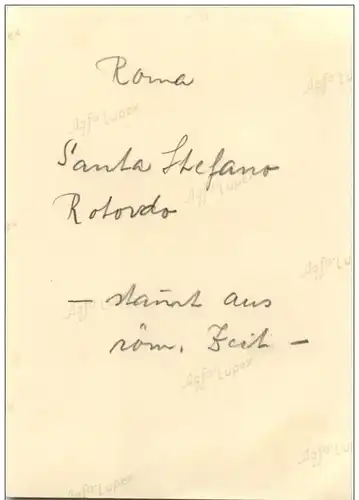 Roma
Santa Stefano
Rotondo
– stammt aus
röm. Zeit –
Agfa-Lupex
Agfa-Lupex
Agfa-Lupex
Agfa-Lupex
Agfa-Lupex
Agfa-Lupex
Agfa-Lupex
Agfa-Lupex